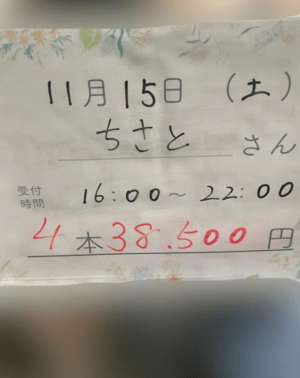 11月15日（土）
ちさとさん
受付時間 16:00～22:00
4本38.500円